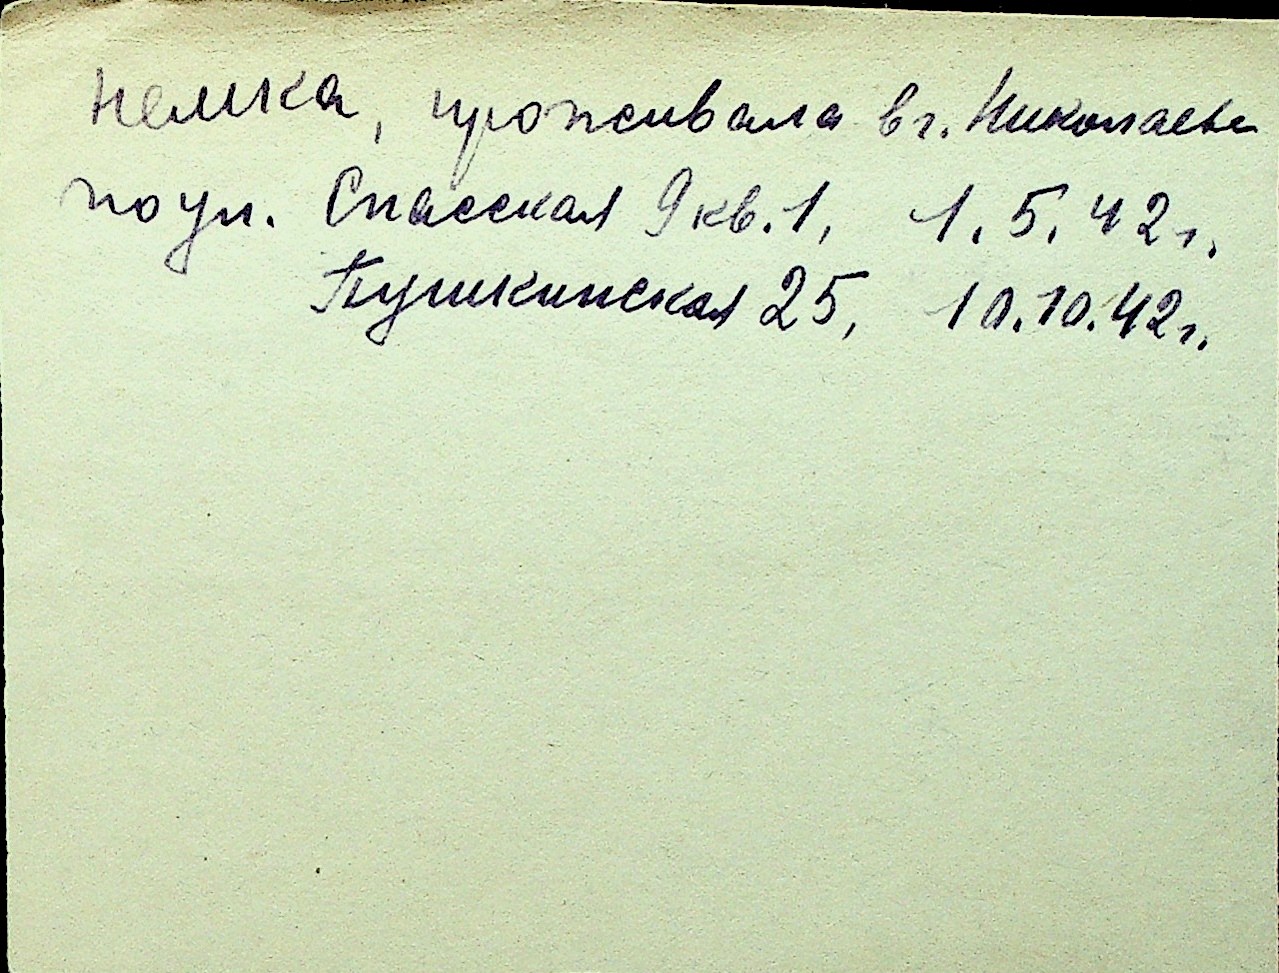 немка, проживала в г. Николаеве
по ул. Спасская 9 кв. 1, 1.5.42 г.
Пушкинская 25, 10.10.42 г.